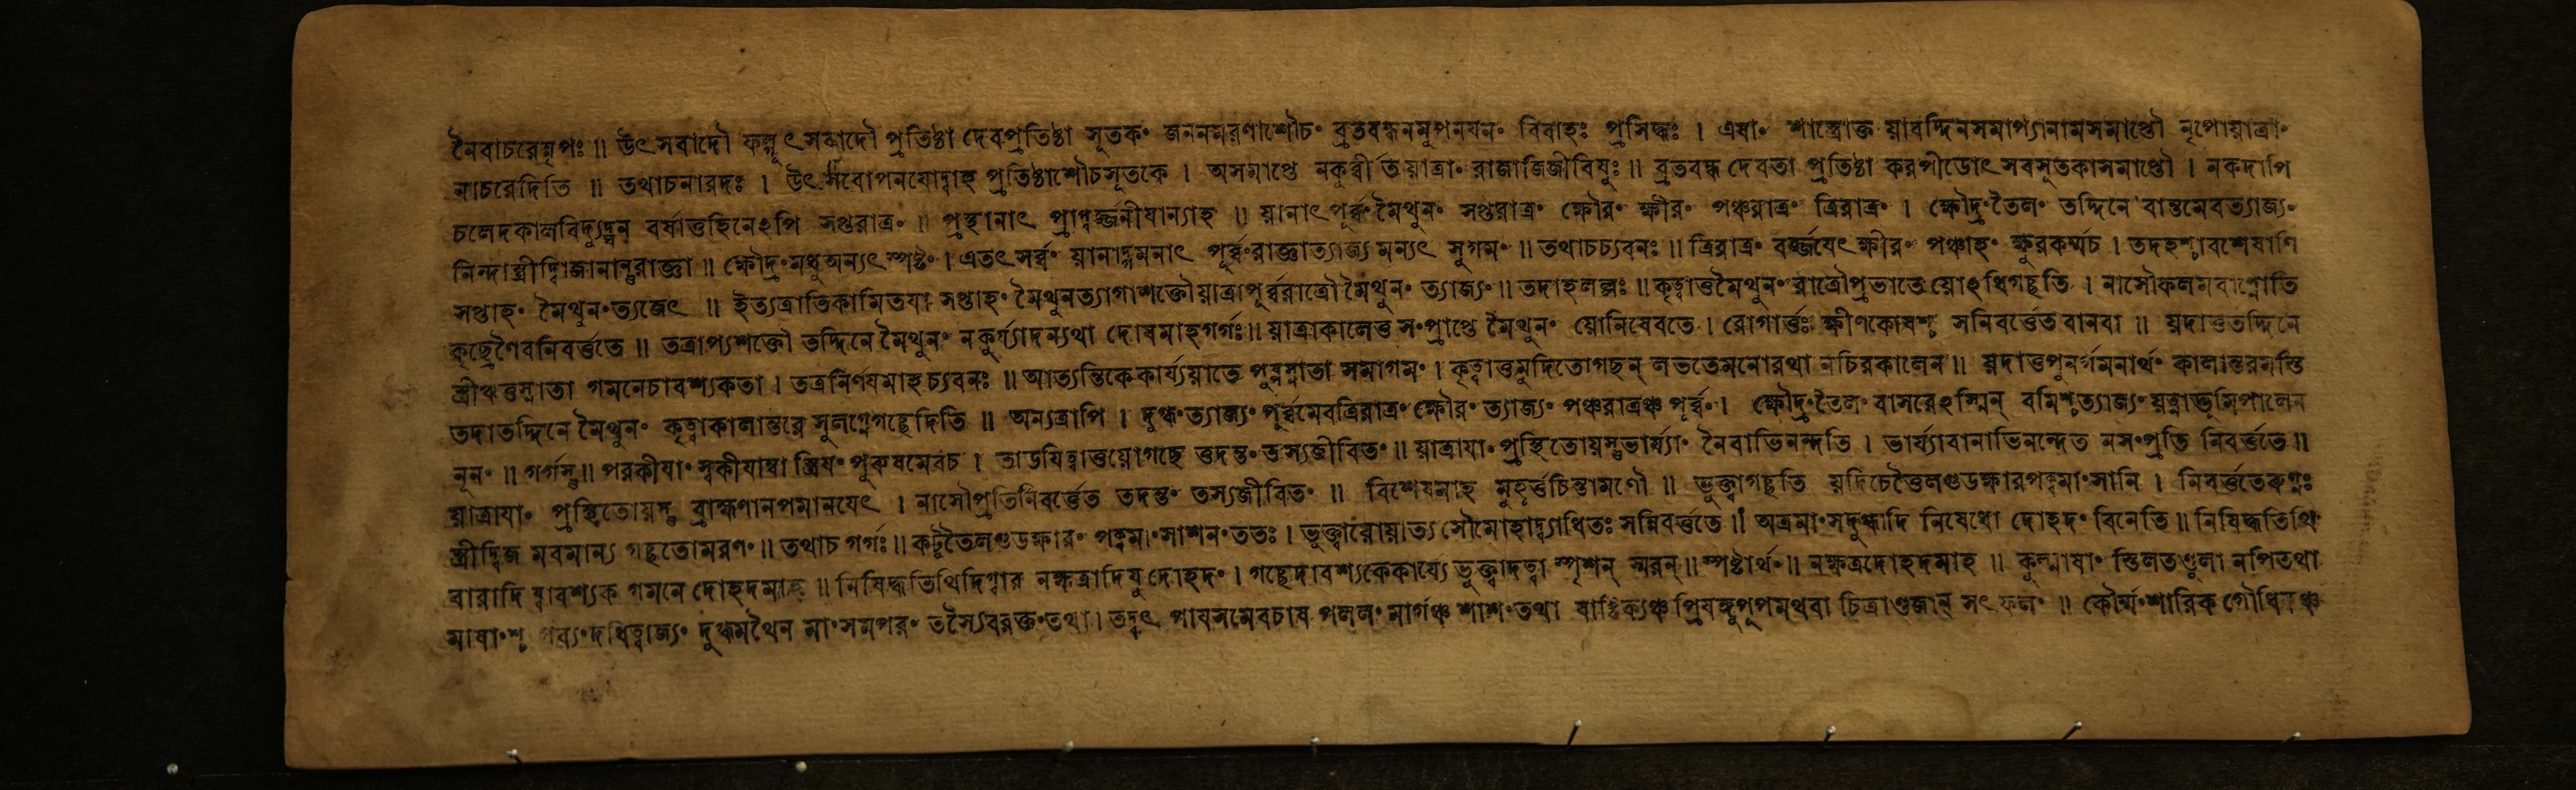 নৈবাচরেন্নৃপঃ ॥ উৎসবাদৌ ফল্গূৎসবাদৌ প্রতিষ্ঠা দেবপ্রতিষ্ঠা সূতকং জননমরণাশৌচং ব্রতবন্ধনমুপনযনং বিবাহঃ প্রসিদ্ধঃ । এষাং শাস্ত্রোক্ত য়াবদ্দিনসমাপ্যানামসমাপ্তৌ নৃপোয়াত্রাং
নাচরেদিতি ॥ তথাচনারদঃ । উৎসবোপনযোদ্বাহ প্রতিষ্ঠাশৌচসূতকে । অসমাপ্তে নকূর্ব্বীতয়াত্রাং রাজাজিজীবিষুঃ ॥ ব্রতবন্ধ দেবতা প্রতিষ্ঠা করপীডোৎসবসূতকাসমাপ্তৌ । নকদাপি
চলেদকালবিদ্যুদ্ঘন বর্ষাত্তহিনেঽপি সপ্তরাত্রং ॥ প্রস্থানাৎ প্রাগ্বর্জ্জনীযান্যাহ ॥ য়ানাৎপূর্ব্বং মৈথুনং সপ্তরাত্রং ক্ষৌরং ক্ষীরং পঞ্চরাত্রং ত্রিরাত্রং । ক্ষৌদ্রংতৈলং তদ্দিনে বান্তমেবত্যাজ্যং
নিন্দাস্ত্রীদ্বিজানান্তুরাজ্ঞা ॥ ক্ষৌদ্রংমধুঅন্যৎস্পষ্টং । এতৎসর্ব্বং য়ানাদ্গমনাৎ পূর্ব্বংরাজ্ঞাত্যাজ্যমন্যৎ সুগমং ॥ তথাচচ্যবনঃ ॥ ত্রিরাত্রং বর্জ্জযেৎক্ষীরং পঞ্চাহং ক্ষুরকর্ম্মচ । তদহশ্চাবশেষাণি
সপ্তাহং মৈথুনংত্যজেৎ ॥ ইত্যত্রাতিকামিতযা সপ্তাহং মৈথুনত্যাগাশক্তৌয়াত্রাপূর্ব্বরাত্রৌ মৈথুনং ত্যাজ্যং ॥ তদাহলল্লঃ ॥ কৃত্বাত্তমৈথুনংরাত্রৌপ্রভাতেয়োঽধিগচ্ছতি । নাসৌফলমবাপ্নোতি
কৃছ্রেণৈবনিবর্ত্ততে ॥ তত্রাপ্যশক্তৌ তদ্দিনে মৈথুনং নকুর্য্যাদন্যথা দোষমাহগর্গঃ ॥ য়াত্রাকালেত্ত সংপ্রাপ্তে মৈথুনং য়োনিষেবতে । রোগার্ত্তঃ ক্ষীণকোষশ্চ সনিবর্ত্তেত বানবা ॥ য়দাত্ততদ্দিনে
স্ত্রীঋত্তস্নাতা গমনেচাবশ্যকতা । তত্রনির্ণযমাহচ্যবনঃ ॥ আত্যন্তিকেকার্য্যয়াতে পুন্নস্নাতা সমাগমং । কৃত্বাত্তমুদিতোগছন্ লভতেমনোরথা নচিরকালেন ॥ য়দাত্তপুনর্গমনার্থং কালান্তরমস্তি
তদাতদ্দিনে মৈথুনং কৃত্বাকালান্তরে সুলগ্নেগচ্ছেদিতি ॥ অন্যত্রাপি । দুগ্ধংত্যাজ্যং পূর্ব্বমেবত্রিরাত্রং ক্ষৌরং ত্যাজ্যং পঞ্চরাত্রঞ্চ পূর্ব্বং । ক্ষৌদ্রংতৈলং বাসরেঽস্মিন্ বমিশ্চত্যাজ্যং য়ত্নাদ্ভূমিপালেন
নূনং ॥ গর্গস্তু ॥ পরকীযাং স্বকীযাম্বা স্ত্রিযং পুরুষমেবচ । তাডযিত্বাত্তয়োগচ্ছে ত্তদন্তং তস্যজীবিতং ॥ য়াত্রাযাং প্রস্থিতোয়স্তুভার্য্যাং নৈবাভিনন্দতি । ভার্য্যাবানাভিনন্দেত নসংপ্রতি নিবর্ত্ততে ॥
য়াত্রাযাং প্রস্থিতোয়স্তু ব্রাহ্মণানপমানযেৎ । নাসৌপ্রতিনিবর্ত্তেত তদন্তং তস্যজীবিতং ॥ বিশেষমাহ মুহূর্ত্তচিন্তামণৌ ॥ ভুক্ত্বাগচ্ছতি য়দিচেত্তৈলগুডক্ষারপক্বমাংসানি । নিবর্ত্ততেরুগ্নঃ
স্ত্রীদ্বিজ মবমান্য গচ্ছতোমরণং ॥ তথাচ গর্গঃ ॥ কটুতৈলগুডক্ষারং পক্বমাংসাশনংততঃ । ভুক্ত্বারোয়াত্যসৌমোহাদ্ব্যাধিতঃ সন্নিবর্ত্ততে ॥ অত্রমাংসদুগ্ধাদি নিষেধো দোহদং বিনেতি ॥ নিষিদ্ধতিথি
বারাদি ষ্বাবশ্যক গমনে দোহদমাহ ॥ নিষিদ্ধতিথিদিগ্বার নক্ষত্রাদিষুদোহদং । গচ্ছেদাবশ্যকেকার্য্যে ভুক্ত্বাদত্বা স্পৃশন্ স্মরন্ ॥ স্পষ্টার্থং ॥ নক্ষত্রদোহদমাহ ॥ কুল্মাষাং স্তিলতণ্ডুলা নপিতথা
মাষাংশ্চ গব্যংদধিত্বাজ্যং দুগ্ধমথৈন মাংসমপরং তস্যৈবরক্তংতথা । তদ্বৎ পাযসমেবচাষ পললং মার্গঞ্চ শাশংতথা ষাষ্টিক্যঞ্চ প্রিযঙ্গুপূপমথবা চিত্রাণ্ডজান্ সৎফলং ॥ কৌর্ম্মংশারিক গৌধিকঞ্চ